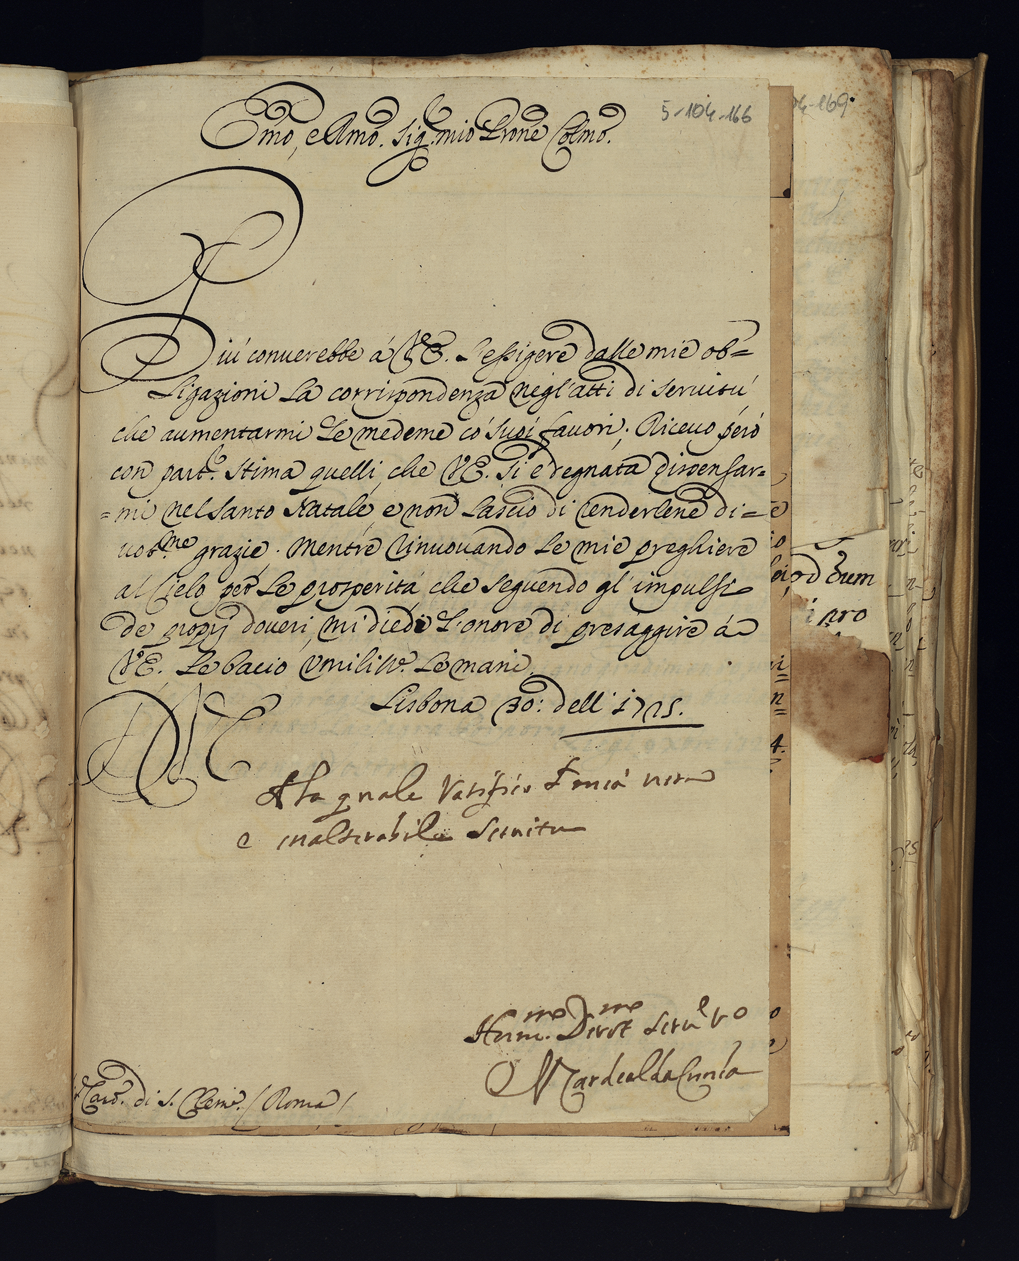 5-104-166
Emo, e Rmo. Sig. mio Prone Colmo.
Piú conuerebbe á V.E. l'essigere dalle mie ob=
ligazioni la corrispondenza negl'atti di seruitú
che aumentarmi le medeme có suoi fauori; Riceuo peró
con part.e stima quelli, che V.E. si é degnata dispensar=
=mi nel Santo Natale, e non lascio di renderlene di=
uotme grazie. Mentre rinuouando le mie preghiere
al Cielo per le prosperitá che seguendo gl'impulsi
de proprij doueri, mi diedi l'onore di presaggire á
V.E. le bacio vmilm.e le mani.
Lisbona 30: dell' 1725.
Alla quale ratifico la mia vera
e inalterabile Seruitu
Hum.mo Diuot.mo Seru.e v.o
N Card.al da Cunha
Card. di S. Clem.e / Roma /
-169.
od cum
pro